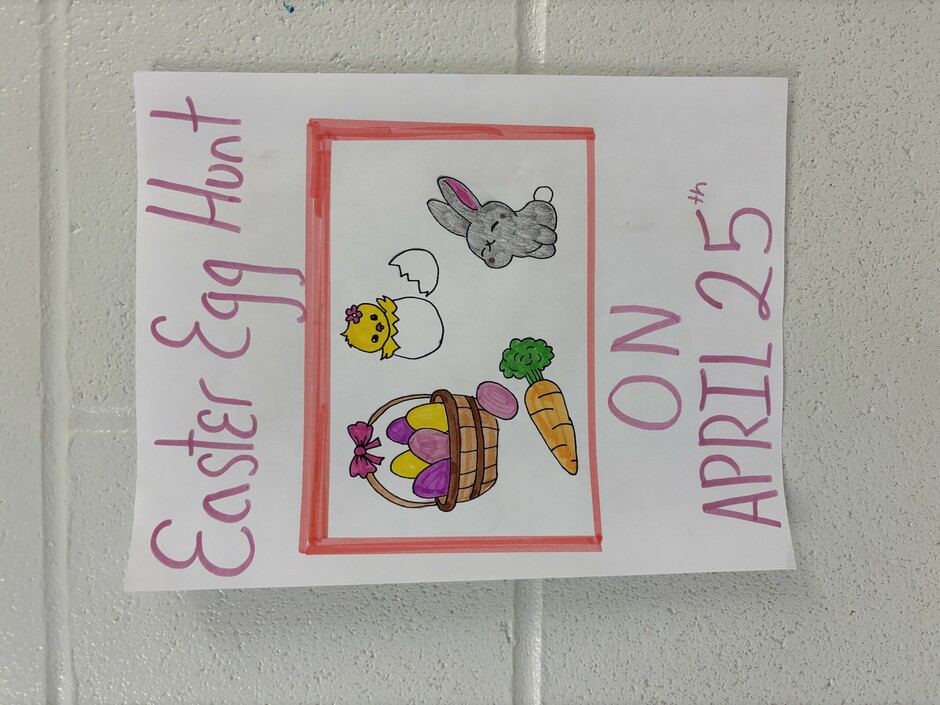 Easter Egg Hunt
ON
APRIL 25th